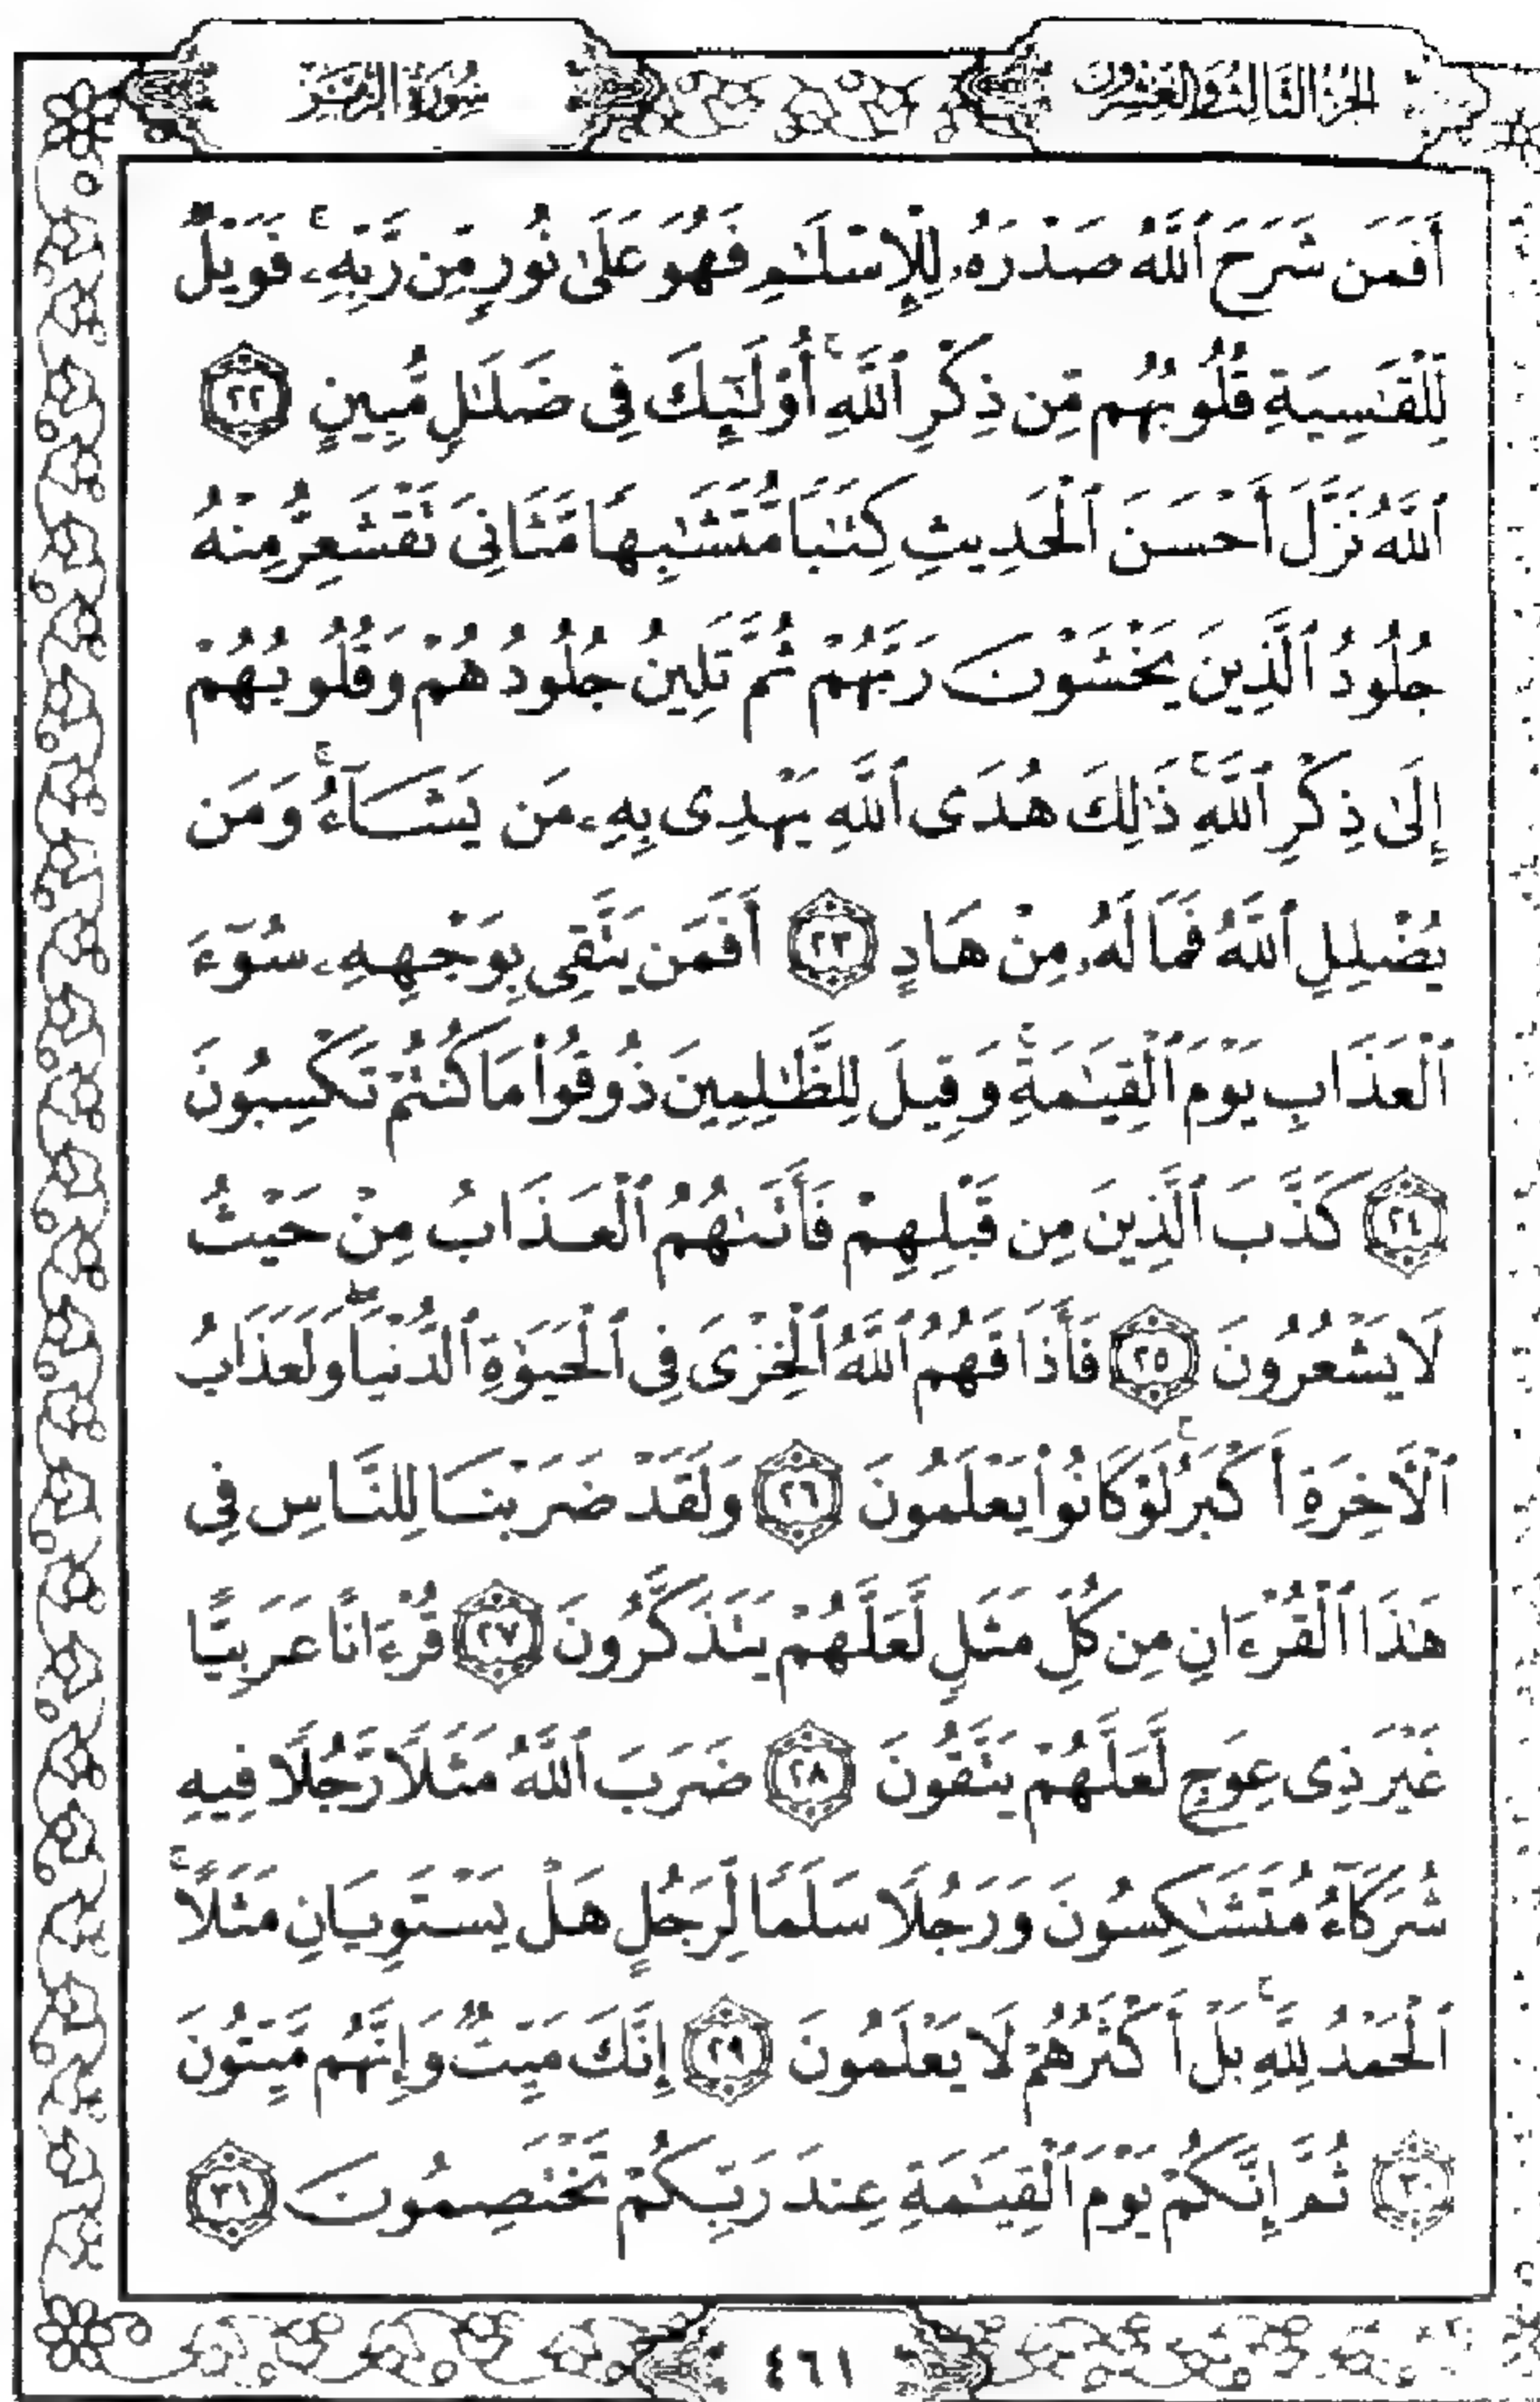 الجزء الثالث والعشرون
سورة الزمر
أَفَمَن شَرَحَ ٱللَّهُ صَدْرَهُۥ لِلْإِسْلَٰمِ فَهُوَ عَلَىٰ نُورٍ مِّن رَّبِّهِۦ ۚ فَوَيْلٌ
لِّلْقَٰسِيَةِ قُلُوبُهُم مِّن ذِكْرِ ٱللَّهِ ۚ أُو۟لَٰٓئِكَ فِى ضَلَٰلٍ مُّبِينٍ ٢٢
ٱللَّهُ نَزَّلَ أَحْسَنَ ٱلْحَدِيثِ كِتَٰبًا مُّتَشَٰبِهًا مَّثَانِىَ تَقْشَعِرُّ مِنْهُ
جُلُودُ ٱلَّذِينَ يَخْشَوْنَ رَبَّهُمْ ثُمَّ تَلِينُ جُلُودُهُمْ وَقُلُوبُهُمْ
إِلَىٰ ذِكْرِ ٱللَّهِ ۚ ذَٰلِكَ هُدَى ٱللَّهِ يَهْدِى بِهِۦ مَن يَشَآءُ ۚ وَمَن
يُضْلِلِ ٱللَّهُ فَمَا لَهُۥ مِنْ هَادٍ ٢٣ أَفَمَن يَتَّقِى بِوَجْهِهِۦ سُوٓءَ
ٱلْعَذَابِ يَوْمَ ٱلْقِيَٰمَةِ ۚ وَقِيلَ لِلظَّٰلِمِينَ ذُوقُوا۟ مَا كُنتُمْ تَكْسِبُونَ
٢٤ كَذَّبَ ٱلَّذِينَ مِن قَبْلِهِمْ فَأَتَىٰهُمُ ٱلْعَذَابُ مِنْ حَيْثُ
لَا يَشْعُرُونَ ٢٥ فَأَذَاقَهُمُ ٱللَّهُ ٱلْخِزْىَ فِى ٱلْحَيَوٰةِ ٱلدُّنْيَا ۖ وَلَعَذَابُ
ٱلْءَاخِرَةِ أَكْبَرُ ۚ لَوْ كَانُوا۟ يَعْلَمُونَ ٢٦ وَلَقَدْ ضَرَبْنَا لِلنَّاسِ فِى
هَٰذَا ٱلْقُرْءَانِ مِن كُلِّ مَثَلٍ لَّعَلَّهُمْ يَتَذَكَّرُونَ ٢٧ قُرْءَانًا عَرَبِيًّا
غَيْرَ ذِى عِوَجٍ لَّعَلَّهُمْ يَتَّقُونَ ٢٨ ضَرَبَ ٱللَّهُ مَثَلًا رَّجُلًا فِيهِ
شُرَكَآءُ مُتَشَٰكِسُونَ وَرَجُلًا سَلَمًا لِّرَجُلٍ هَلْ يَسْتَوِيَانِ مَثَلًا ۚ
ٱلْحَمْدُ لِلَّهِ ۚ بَلْ أَكْثَرُهُمْ لَا يَعْلَمُونَ ٢٩ إِنَّكَ مَيِّتٌ وَإِنَّهُم مَّيِّتُونَ
٣٠ ثُمَّ إِنَّكُمْ يَوْمَ ٱلْقِيَٰمَةِ عِندَ رَبِّكُمْ تَخْتَصِمُونَ ٣١
٤٦١